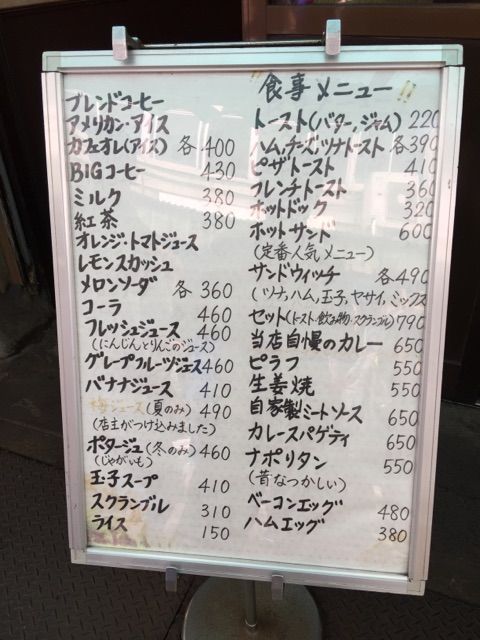 ブレンドコーヒー
アメリカン・アイス
カフェオレ(アイス) 各400
BIGコーヒー 430
ミルク 380
紅茶 380
オレンジ・トマトジュース
レモンスカッシュ
メロンソーダ 各360
コーラ 460
フレッシュジュース 460
(にんじんとりんごのジュース)
グレープフルーツジュース460
バナナジュース 410
梅ジュース(夏のみ) 490
(店主がつけ込みました)
ポタージュ(冬のみ)460
(じゃがいも)
玉子スープ 410
スクランブル 310
ライス 150
"食事メニュー"
トースト(バター,ジャム) 220
ハム,チーズ,ツナトースト 各390
ピザトースト 410
フレンチトースト 360
ホットドック 320
ホットサンド 600
(定番人気メニュー)
サンドウィッチ 各490
(ツナ,ハム,玉子,ヤサイ,ミックス
セット(トースト・飲み物・スクランブル)790
当店自慢のカレー 650
ピラフ 550
生姜焼 550
自家製ミートソース 650
カレースパゲティ 650
ナポリタン 550
(昔なつかしい)
ベーコンエッグ 480
ハムエッグ 380